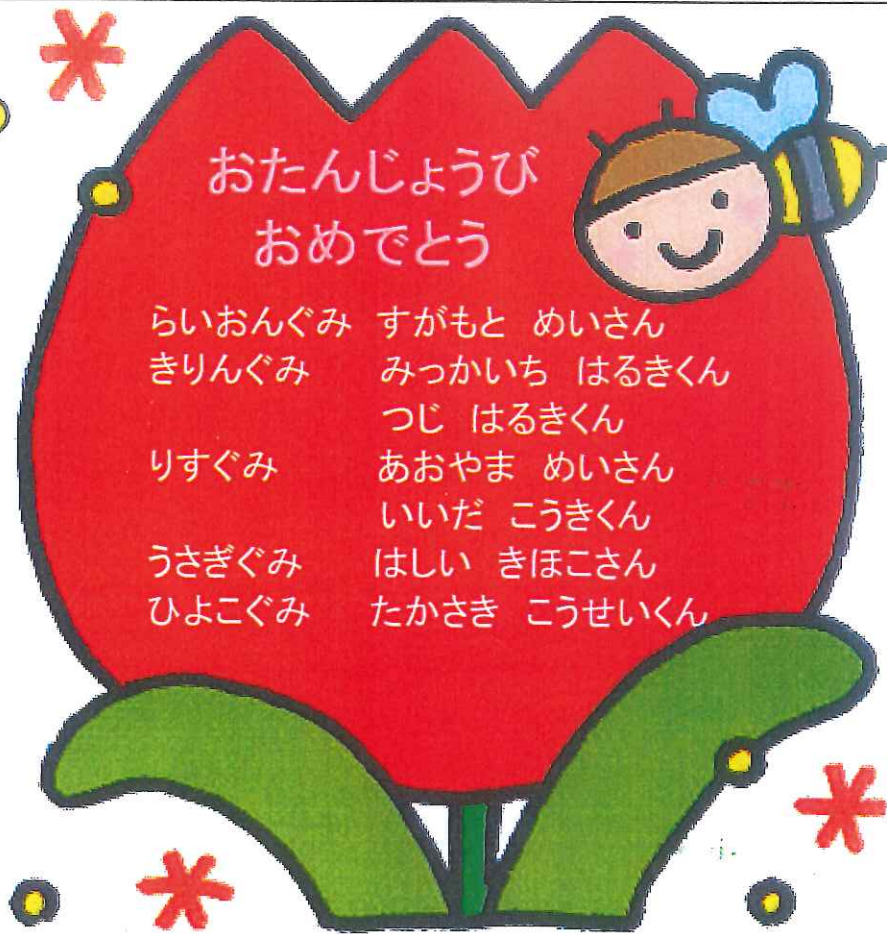 おたんじょうび
おめでとう
らいおんぐみ すがもと めいさん
きりんぐみ みっかいち はるきくん
つじ はるきくん
りすぐみ あおやま めいさん
いいだ こうきくん
うさぎぐみ はしい きほこさん
ひよこぐみ たかさき こうせいくん